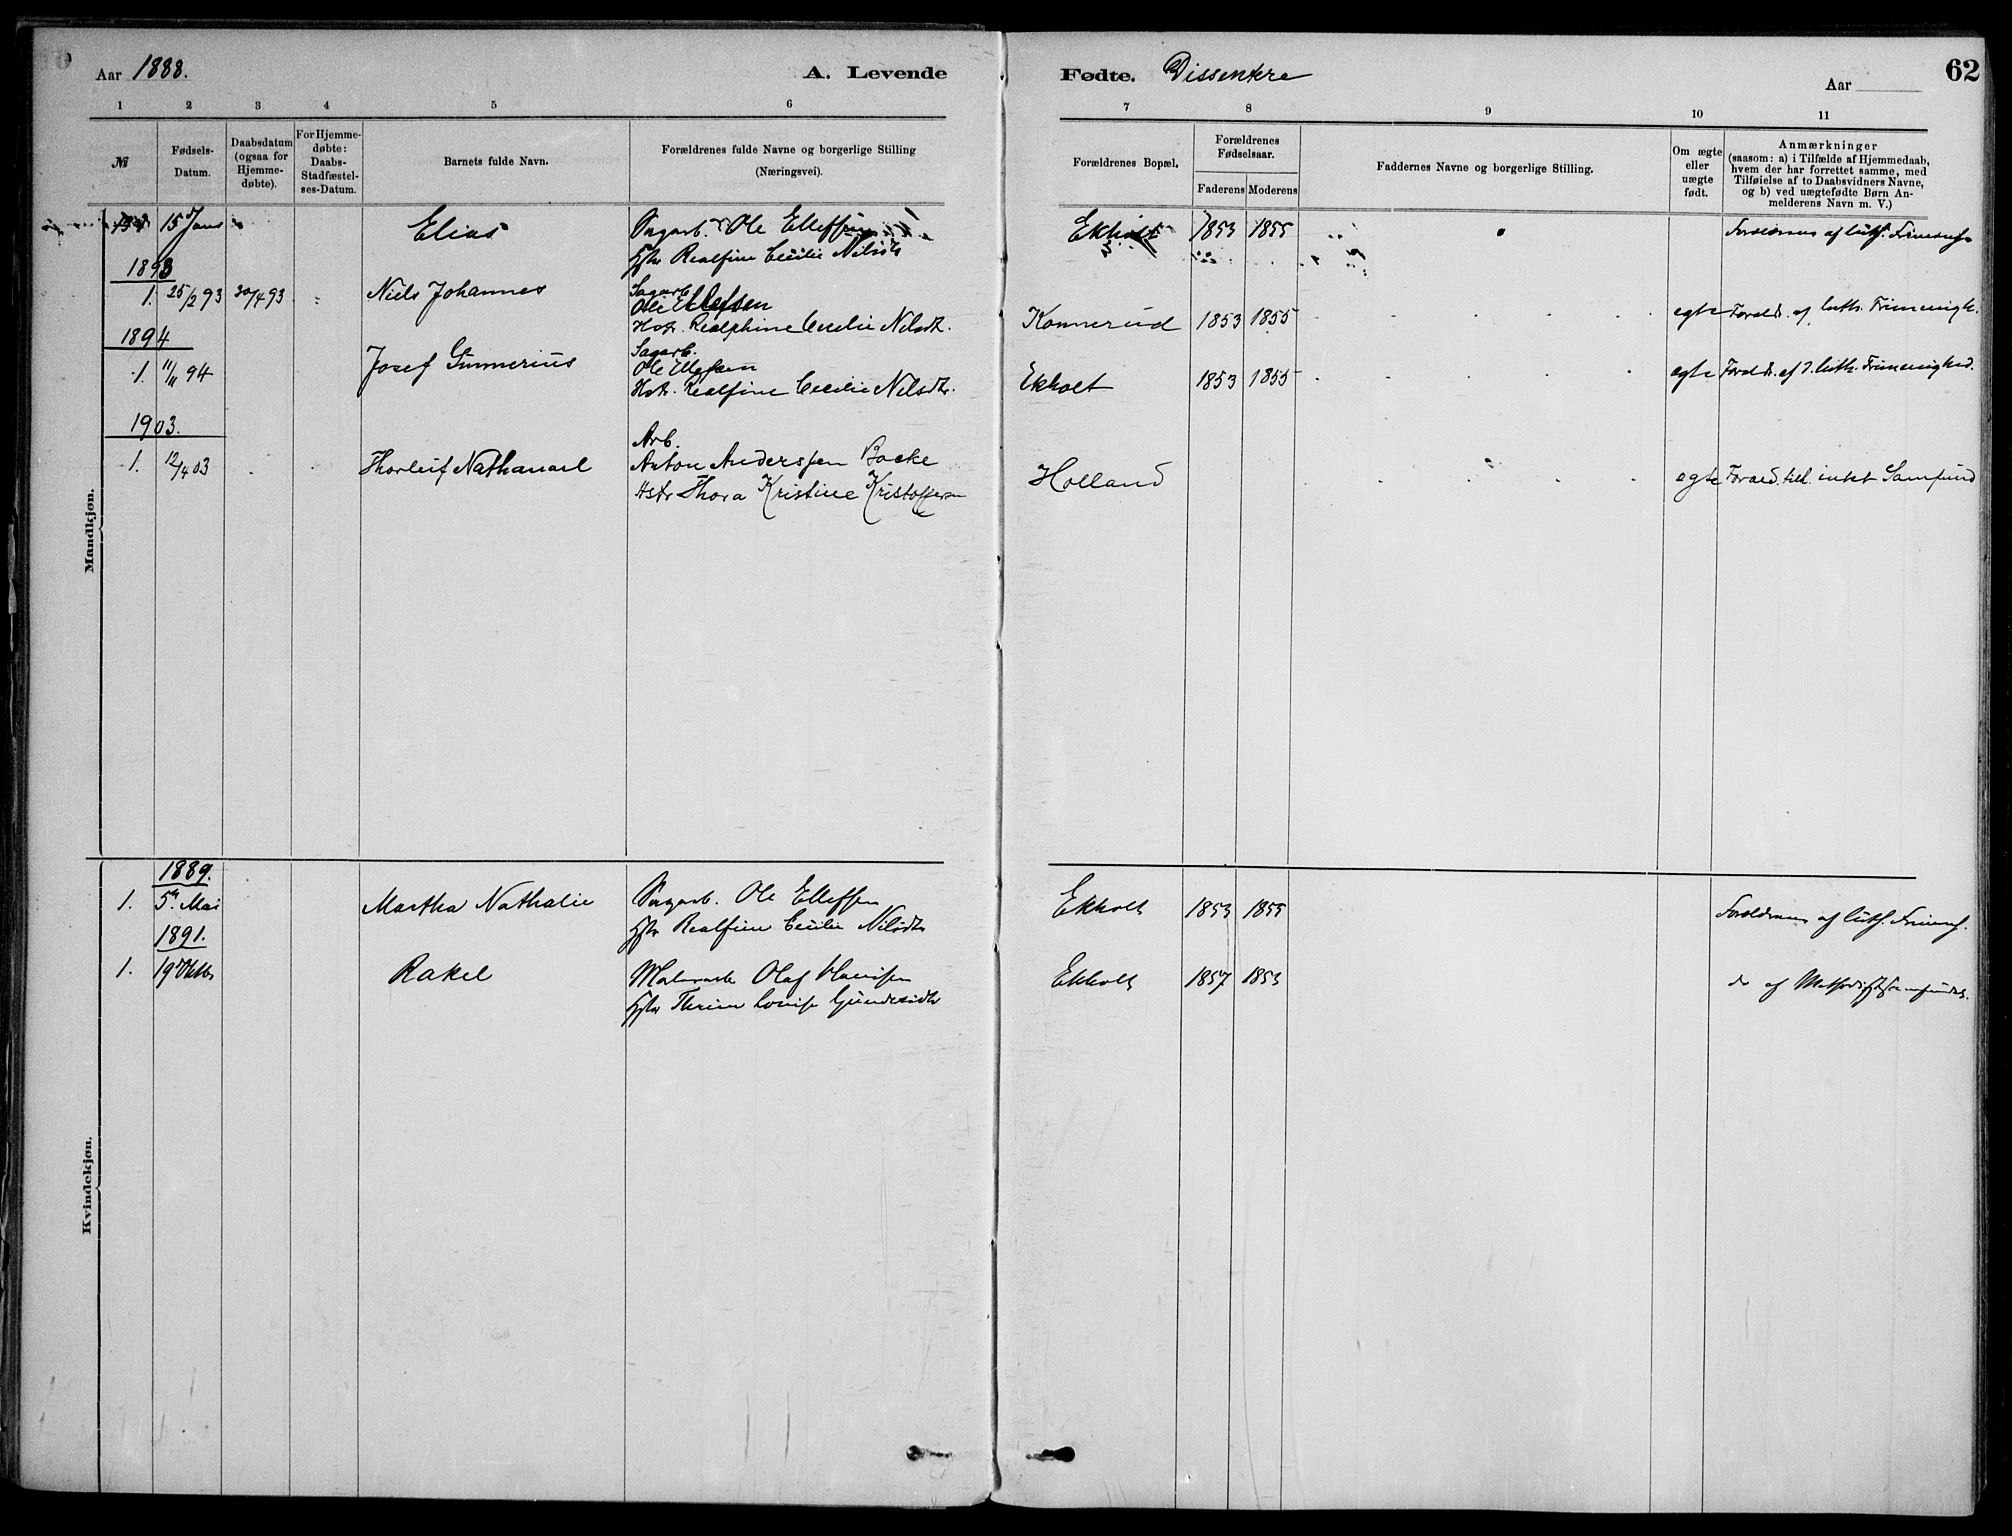 Aar 1888.
A. Levende
Fødte. Dissentere
Aar
62
1 2 3 4 5 6 7 8 9 10 11
№
Fødsels-
Datum.
Daabsdatum
(ogsaa for
Hjemme-
døbte).
For Hjemme-
døbte:
Daabs-
Stadfæstel-
ses-Datum.
Barnets fulde Navn.
Forældrenes fulde Navne og borgerlige Stilling
(Næringsvei).
Forældrenes Bopæl.
Forældrenes
Fødselsaar.
Faderens Moderens
Faddernes Navne og borgerlige Stilling.
Om ægte
eller
uægte
født.
Anmærkninger
(saasom: a) i Tilfælde af Hjemmedaab,
hvem der har forrettet samme, med
Tilføielse af to Daabsvidners Navne,
og b) ved uægtefødte Børn An-
melderens Navn m. V.)
Mandkjøn.
15 Elias Sagarb. Ole Elleffsen Ekholt 1853 1855 Forældrene af luth.
Hstr Realfine Cecilie Nilsdtr
1893
1. 25/2 93 30/4 93 Niels Johannes Sagarb.
Ole Ellefsen
Hstr. Realphine Cecilie Nilsdt. Konnerud 1853 1855 egte Foræld. af luth. Frimenigh.
1894
1. 11/11 94 Josef Gunnerius Sagarb.
Ole Ellefsen
Hstr. Realfine Cecilie Nilsdtr. Ekholt 1853 1855 egte Foræld. af luth. Frimenighed.
1903.
1. 12/4 03 Thorleif Nathanael Arb.
Anton Anderssen Bocke
Hstr Thora Kristine Kristoffersen Holland egte Foræld. till. intet Samfund
Kvindekjøn.
1889.
1. 5te Mai Martha Nathalie Sagarb. Ole Elleffsen Ekholt 1853 1855 Forældrene af luth.
Hstr Realfine Cecilie Nilsdtr
1891.
1. 19de Oktbr Rakel Olaf Ekholt 1857 1853 do af Methodistsamfundet.
Hstr Lovise